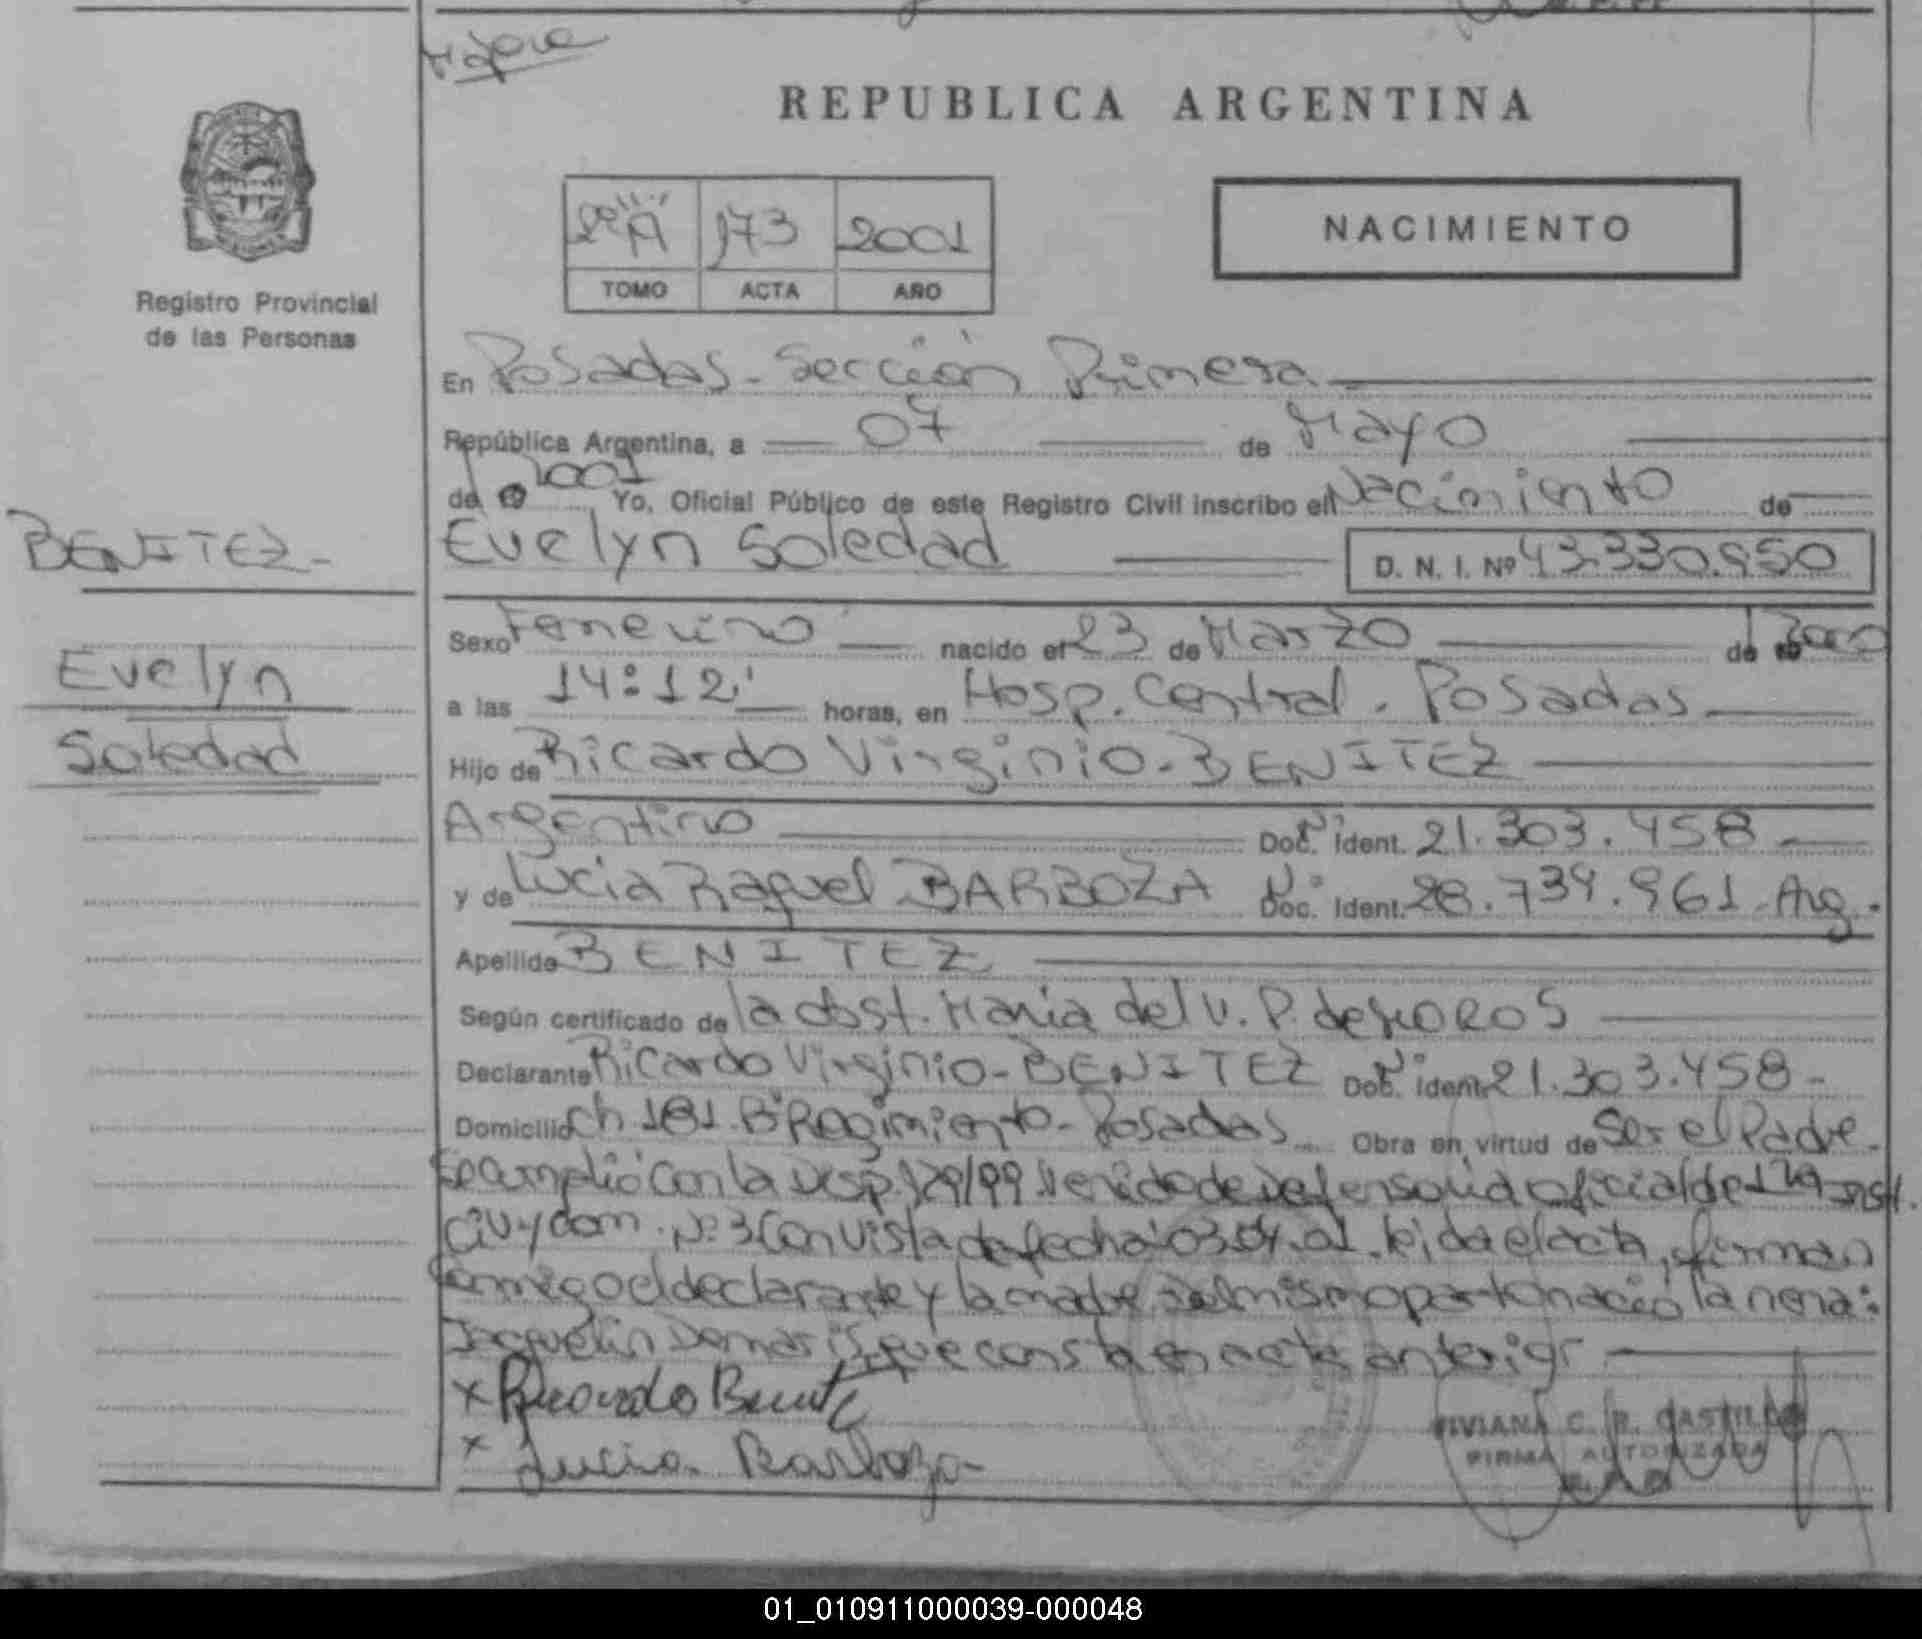 REPUBLICA ARGENTINA
173 2001
TOMO ACTA AÑO
NACIMIENTO
Registro Provincial
de las Personas
En Posadas - Sección Primera
República Argentina, a 07 de Mayo
de 2001 Yo, Oficial Público de este Registro Civil inscribo el Nacimiento de
BENITEZ -
Evelyn Soledad D. N. I. Nº 43.330.950
Sexo Femenino nacido el 23 de Marzo de 2000
Evelyn
a las 14:12' horas, en Hosp. Central. Posadas
Soledad
Hijo de Ricardo Virginio - BENITEZ
Argentino Doc. Ident. 21.303.458
y de Lucia Raquel BARBOZA Doc. Ident. 28.739.961 - Arg.
Apellido BENITEZ
Según certificado de la obst. Maria del V. P. de
Declarante Ricardo Virginio - BENITEZ Doc. Ident. 21.303.458 -
Domicilio Ch 181. Bº Regimiento - Posadas Obra en virtud de Ser el Padre -
Se cumplió con la Disp. 129/99 de Defensoria oficial de Inst.
Civ y Com. Nº 3 Con vista de fecha 03.04.01. leida el acta, firman
conmigo el declarante y la madre. Del mismo parto nació la nena:
Jaquelin Demaris que consta en acta anterior
x Ricardo Benitez
x Lucia Barboza
VIVIANA C. R. CASTILLO
FIRMA AUTORIZADA
01_010911000039-000048